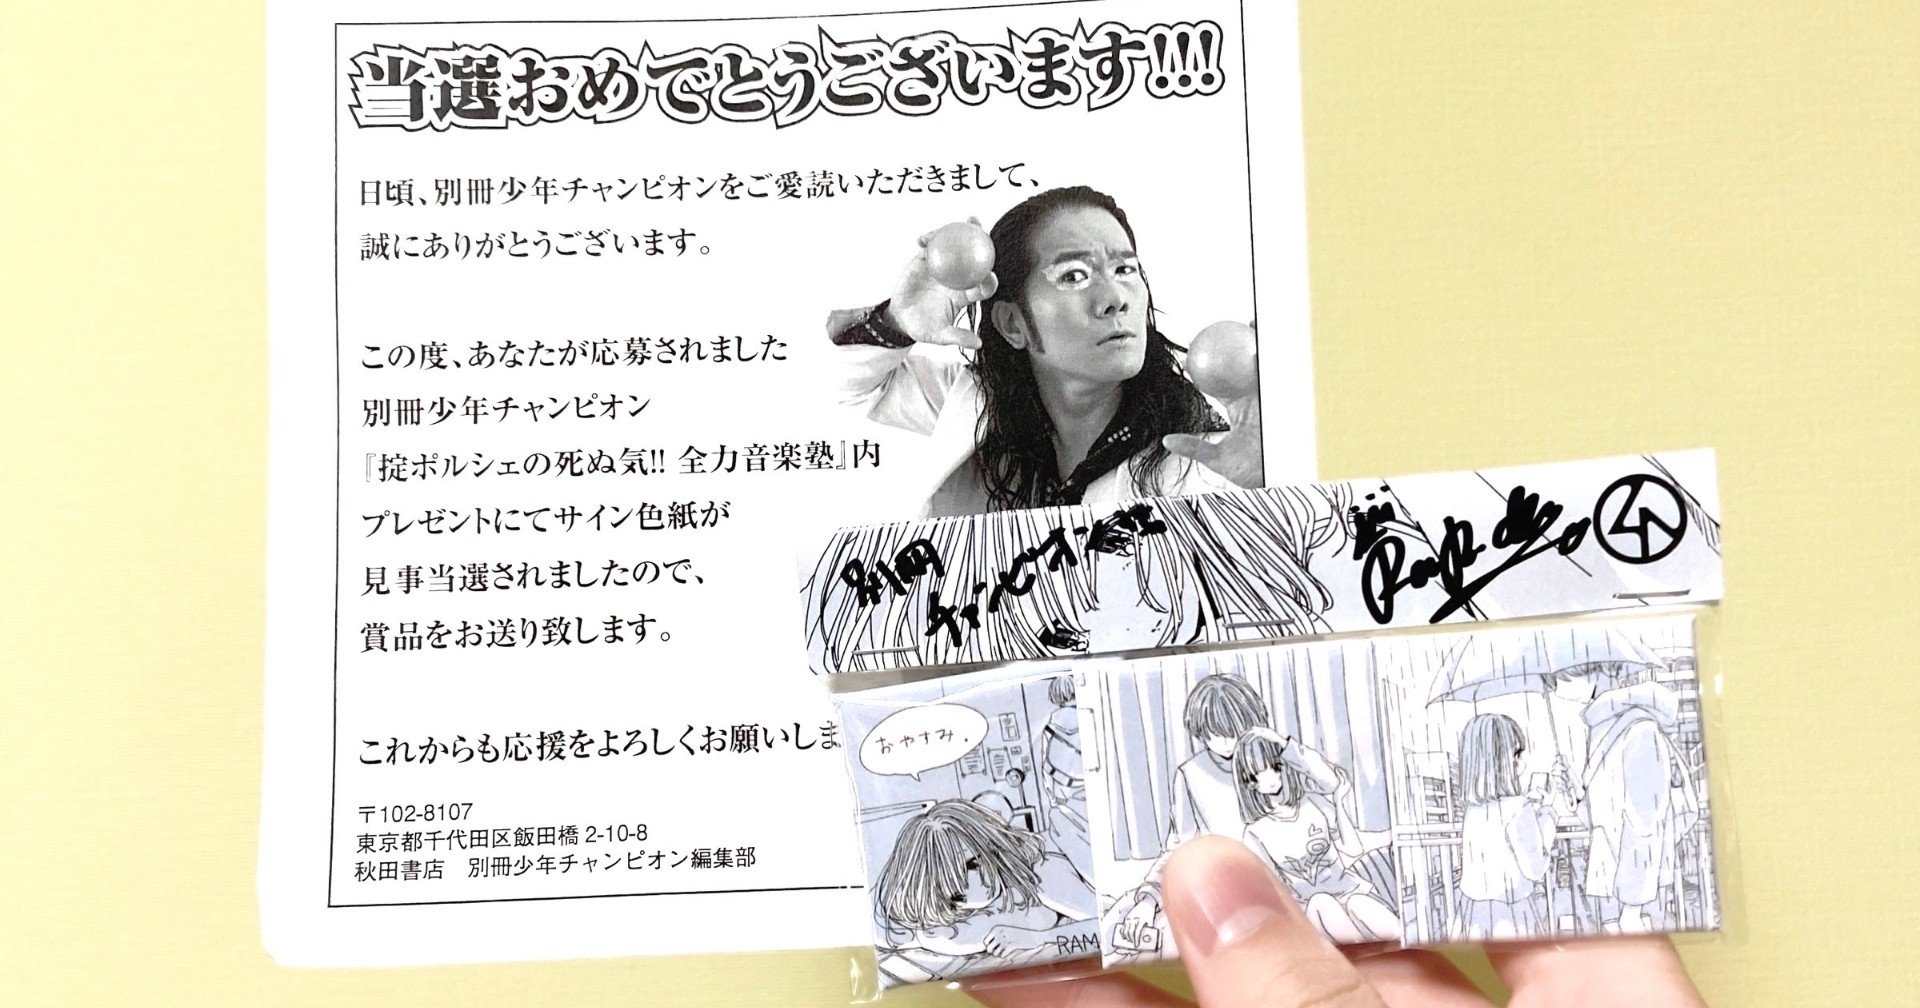 当選おめでとうございます!!!
日頃、別冊少年チャンピオンをご愛読いただきまして、
誠にありがとうございます。
この度、あなたが応募されました
別冊少年チャンピオン
『掟ポルシェの死ぬ気!! 全力音楽塾』内
プレゼントにてサイン色紙が
見事当選されましたので、
賞品をお送り致します。
これからも応援をよろしくお願いしま
〒102-8107
東京都千代田区飯田橋 2-10-8
秋田書店 別冊少年チャンピオン編集部
別冊
チャンピオン
おやすみ。
RAM